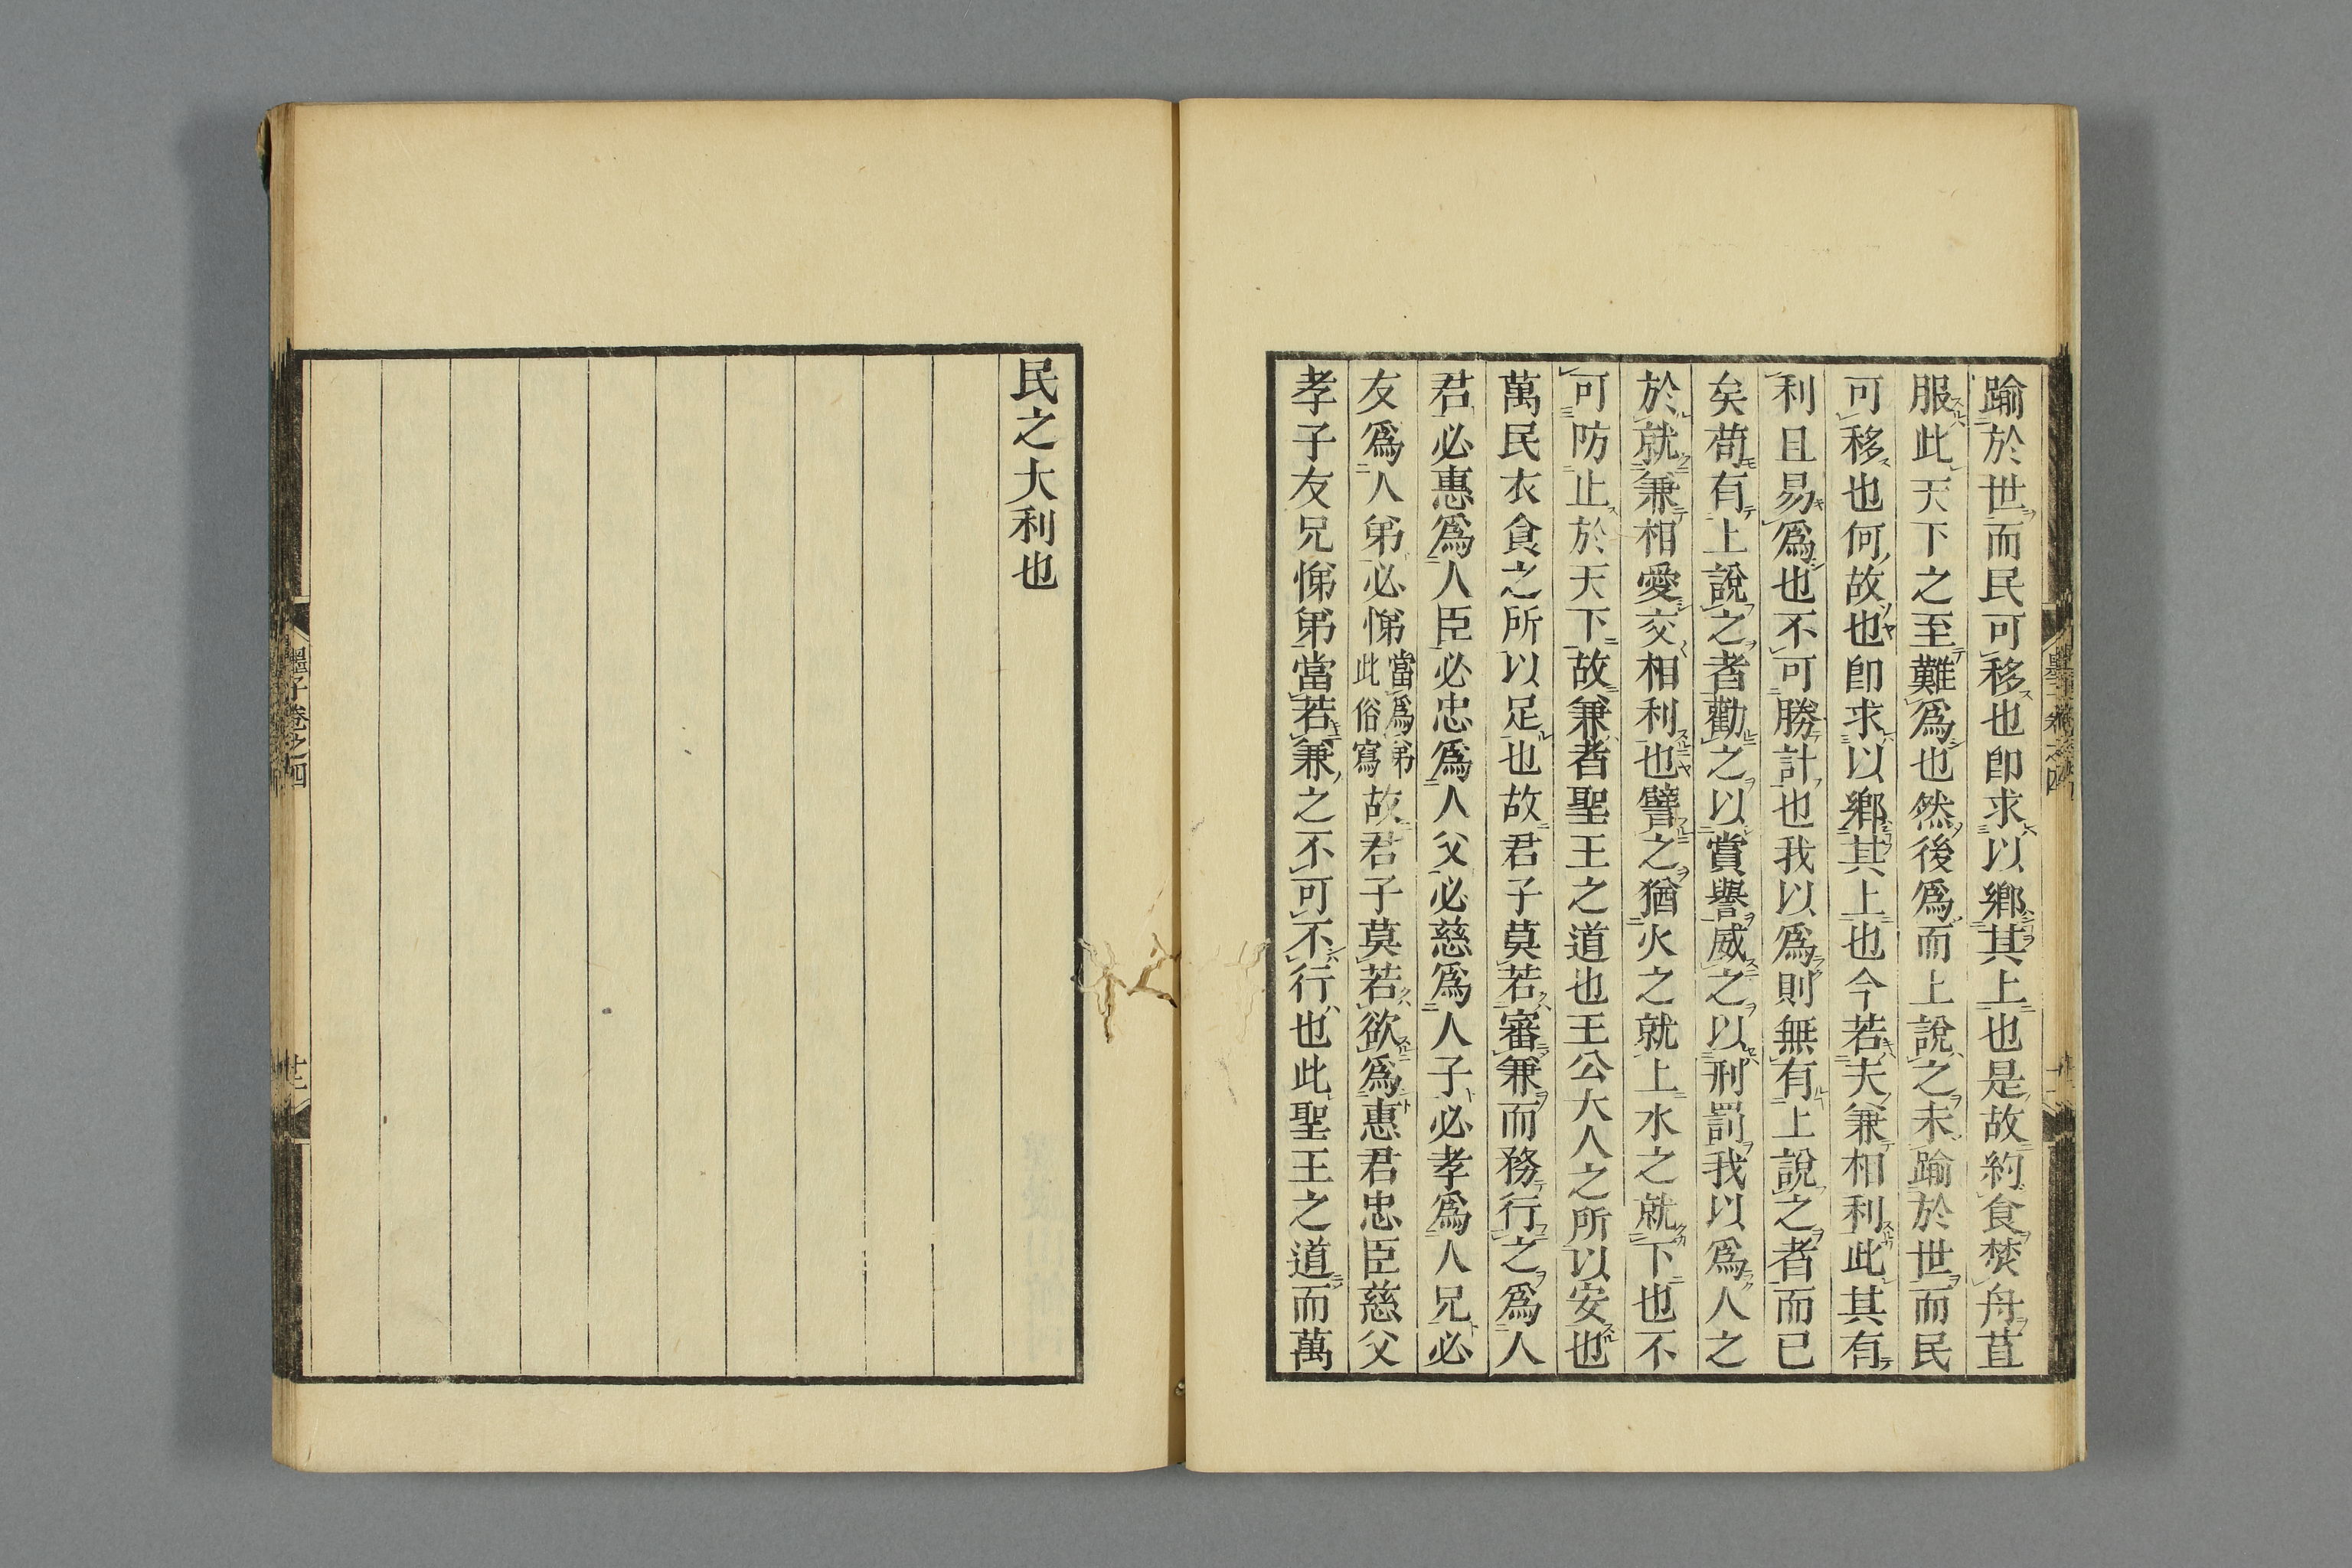 踰於世而民可移也卽求以鄉其上也是故約食焚舟苴
服此天下之至難爲也然後爲而上說之未踰於世而民
可移也何故也卽求以鄉其上也今若夫兼相利此其有
利且易爲也不可勝計也我以爲則無有上說之者而已
矣苟有上說之者勸之以賞譽威之以刑罰我以爲人之
於就兼相愛交相利也譬之猶火之就上水之就下也不
可防止於天下故兼者聖王之道也王公大人之所以安也
萬民衣食之所以足也故君子莫若審兼而務行之爲人
君必惠爲人臣必忠爲人父必慈爲人子必孝爲人兄必
友爲人弟必悌當爲弟此俗寫故君子莫若欲爲惠君忠臣慈父
孝子友兄悌弟當若兼之不可不行也此聖王之道而萬
民之大利也
墨子卷之四